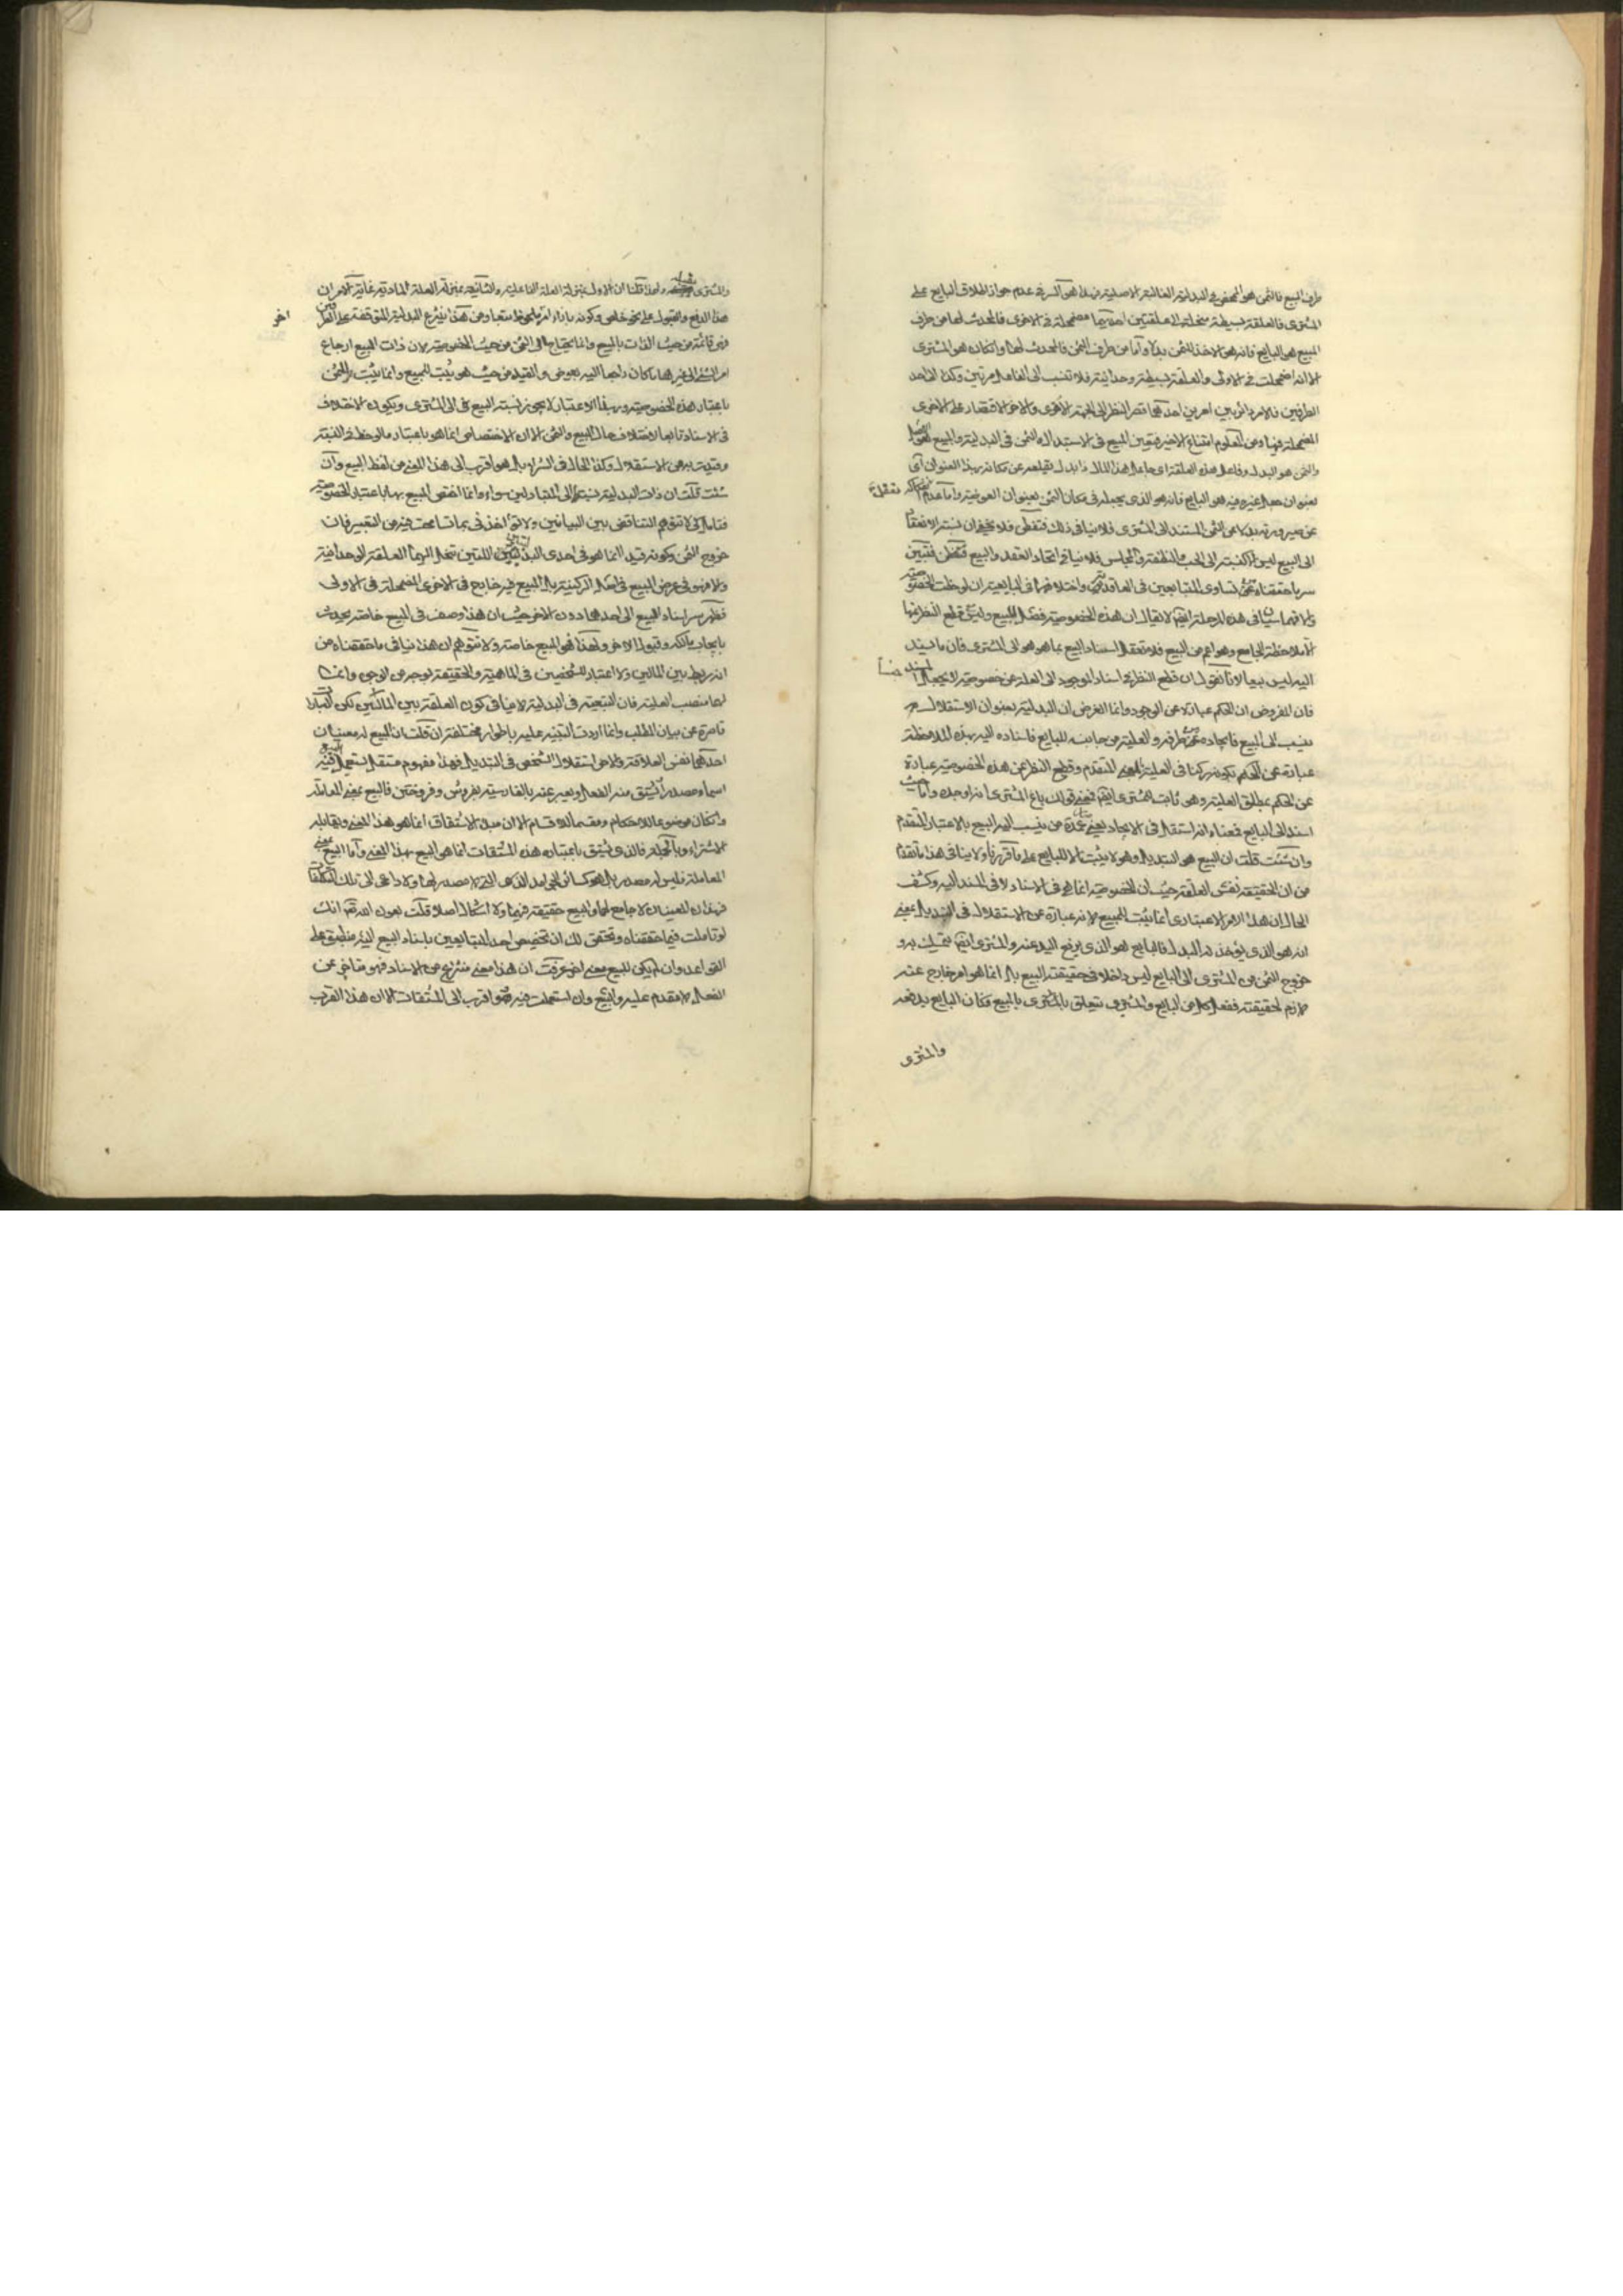 طرف المبيع فالثمن هو المحض في البدلية الغالبة الاصلية فهذا هو السر في عدم جواز اطلاق البايع على
المشتري فالعلقة بسيطة منحلة الى علقتين احديهما مضمحلة في الاخرى فالمحدث لها من طرف
المبيع هو البايع فانه هو الاخذ للثمن بدلا واما من طرف الثمن فالمحدث لها وان كان هو المشتري
الا انه اضمحلت في الاولى والعلقة بسيطة وحدانية فلا تنسب الى الفاعل مرتين وكذا الى احد
الطرفين فالامر دائر بين امرين احدهما قصر النظر الى الجهة الاقوى والاخر الاقتصار على الاخرى
المضمحلة فيها ومن المعلوم امتناع الاخير فتعين المبيع في الاستبدال والثمن في البدلية والمبيع هو
والثمن هو البدل وفاعل هذه العلقة اي جاعل هذا المال ذا بدل يقلعه عن مكانه بهذا العنوان اي
بعنوان جعل غيره فيه هو البايع فانه هو الذي يجعله في مكان الثمن بعنوان العوضية واما عدم
عن صيرورته بدلا عن الثمن المستند الى المشتري فلا ينافي ذلك فتفطن فلا تحقيق ان نسبة الانعقاد
الى البيع ليس الا كنسبته الى الحب والنطفة والمجلس فلا ينافي اتحاد العقد والبيع فتفطن فتبين
سر ما حققناه من تساوي المتبايعين في العاقدية واختلافهما في البايعية ان لوحظت الخصوصية
والا فهما سيان في هذه المرحلة ايضا لا يقال ان هذه الخصوصية فصل للبيع وليس قطع النظر عنها
الا ملاحظة الجامع وهو اعم من البيع فلا تعقل اسناد البيع بما هو هو الى المشتري فان ما يسند
اليه ليس بيعا لانا نقول ان قطع النظر في اسناد الموجود الى العلة عن خصوصية لا يجعل المسند جنسا
فان المفروض ان الحكم عبارة عن الوجود وانما الغرض ان البدلية بعنوان الاستقلال
ينسب الى المبيع فايجاده من طرفه والعلية من جانبه للبايع فاسناده اليه بهذه الملاحظة
عبارة عن الحكم بكونه ركنا في العلية بالمعنى المتقدم وقطع النظر عن هذه الخصوصية عبارة
عن الحكم بمطلق العلية وهو ثابت للمشتري ايضا فمعنى قولك باع المشتري انه اوجد واما حيث
اسند الى البايع فمعناه انه استقل في الايجاد بمعنى من ينسب اليه البيع بالاعتبار المتقدم
وان شئت قلت ان البيع هو التبديل وهو لا يثبت الا للبايع على ما قررنا ولا ينافي هذا ما تقدم
من ان الحقيقة نفس العلقة حيث ان الخصوصية انما هو في الاسناد لا في المسند اليه وكشف
الحال ان هذا الامر الاعتباري انما يثبت للمبيع لانه عبارة عن الاستقلال في التبديل بمعنى
انه هو الذي يؤخذ له البدل فالبايع هو الذي يرفع اليد عنه والمشتري ايضا يتملك به و
خروج الثمن من المشتري الى البايع ليس داخلا في حقيقة البيع بل انما هو امر خارج عنه
لازم لحقيقته ففعل كل من البايع والمشتري يتعلق بالمبيع فكان البايع يدفعه
والمشتري
والمشتري يقبله ولهذا قلنا ان الاول بمنزلة العلة الفاعلية والثاني بمنزلة العلة المادية غاية الامر ان
هذا الدفع والقبول على نحو خاص وكونه بازاء امر ملحوظ تبعا ومن هذا ينتزع البدلية المتوقفة على الطرفين
وهي قائمة من حيث الذات بالمبيع وانما يحتاج الى الثمن من حيث الخصوصية لان ذات البيع ارجاع اخر
امر الشيء الى غير اهله كان راجعا اليه بعوض والقيد من حيث هو يثبت للمبيع وانما يثبت للثمن
باعتبار هذه الخصوصية وبهذا الاعتبار لا يجوز نسبة البيع الى المشتري ويكون الاختلاف
في الاسناد تابعا لاختلاف حال المبيع والثمن الا ان الاختصاص انما هو باعتبار ما لوحظ في النسبة
وقيدت به من الاستقلال وكذا الحال في الشراء بل هو اقرب الى هذا المعنى من لفظ البيع وان
شئت قلت ان ذات البدلية نسبتها الى المتبادلين سواء وانما اختص المبيع بها باعتبار الخصوصية
فتامل كي لا تتوهم التناقض بين البيانين ولا تؤاخذني بما تسامحت فيه من التعبير فان
خروج الثمن وكونه قيدا انما هو في احدى البدليتين اللتين تنحل اليهما العلقة الوحدانية
والا فهو في عرض المبيع في اصل الركنية بل المبيع فيه خارج في الاخرى المضمحلة في الاولى
فظهر سر اسناد المبيع الى احدهما دون الاخر حيث ان هذا وصف في المبيع خاصة يحدث
بايجاب مالكه وقبول الاخر ولهذا فهو المبيع خاصة ولا تتوهم ان هذا ينافي ما حققناه من
انه ربط بين المالين ولا اعتبار للشخصين في الماهية والحقيقة بوجه من الوجوه وانما
لهما منصب العلية فان التبعية في البدلية لا ينافي كون العلقة بين المالكين لكن العبارة
قاصرة عن بيان المطلب وانما اردت التنبيه عليه باطوار مختلفة ان قلت ان للبيع له معنيان
احدهما نفس العلاقة والاخر استقلال الشخص في التبديل فهذا مفهوم مستقل يستعمل فيه البيع
اسما ومصدرا ويشتق منه الفعل ويعبر عنه بالفارسية بفروش وفروختن فالبيع بمعنى المعاملة
وان كان موضوعا للاحكام ومقسما للاقسام الا ان مبدء الاشتقاق انما هو هذا المعنى ويقابله
الاشتراء وبالجملة فالذي يشتق باعتباره هذه المشتقات انما هو البيع بهذا المعنى واما البيع بمعنى
المعاملة فليس له مصدر بل هو كسائر الجوامد الذي التي لا مصدر لها ولا داعي الى تلك التكلفات
فهذان المعنيان لا جامع لهما والبيع حقيقة فيهما ولا اشكال اصلا قلت بعون الله تعالى انك
لو تاملت فيما حققناه وتحقق لك ان تخصيص احد المتبايعين باسناد البيع اليه منطبق على
القواعد وان لم يكن للبيع معنى اخر عرفت ان هذا معنى منتزع من الاسناد فهو متاخر عن
الفعل لا مقدم عليه والبيع وان استعملت فيه فهو اقرب الى المشتقات الا ان هذا القرب